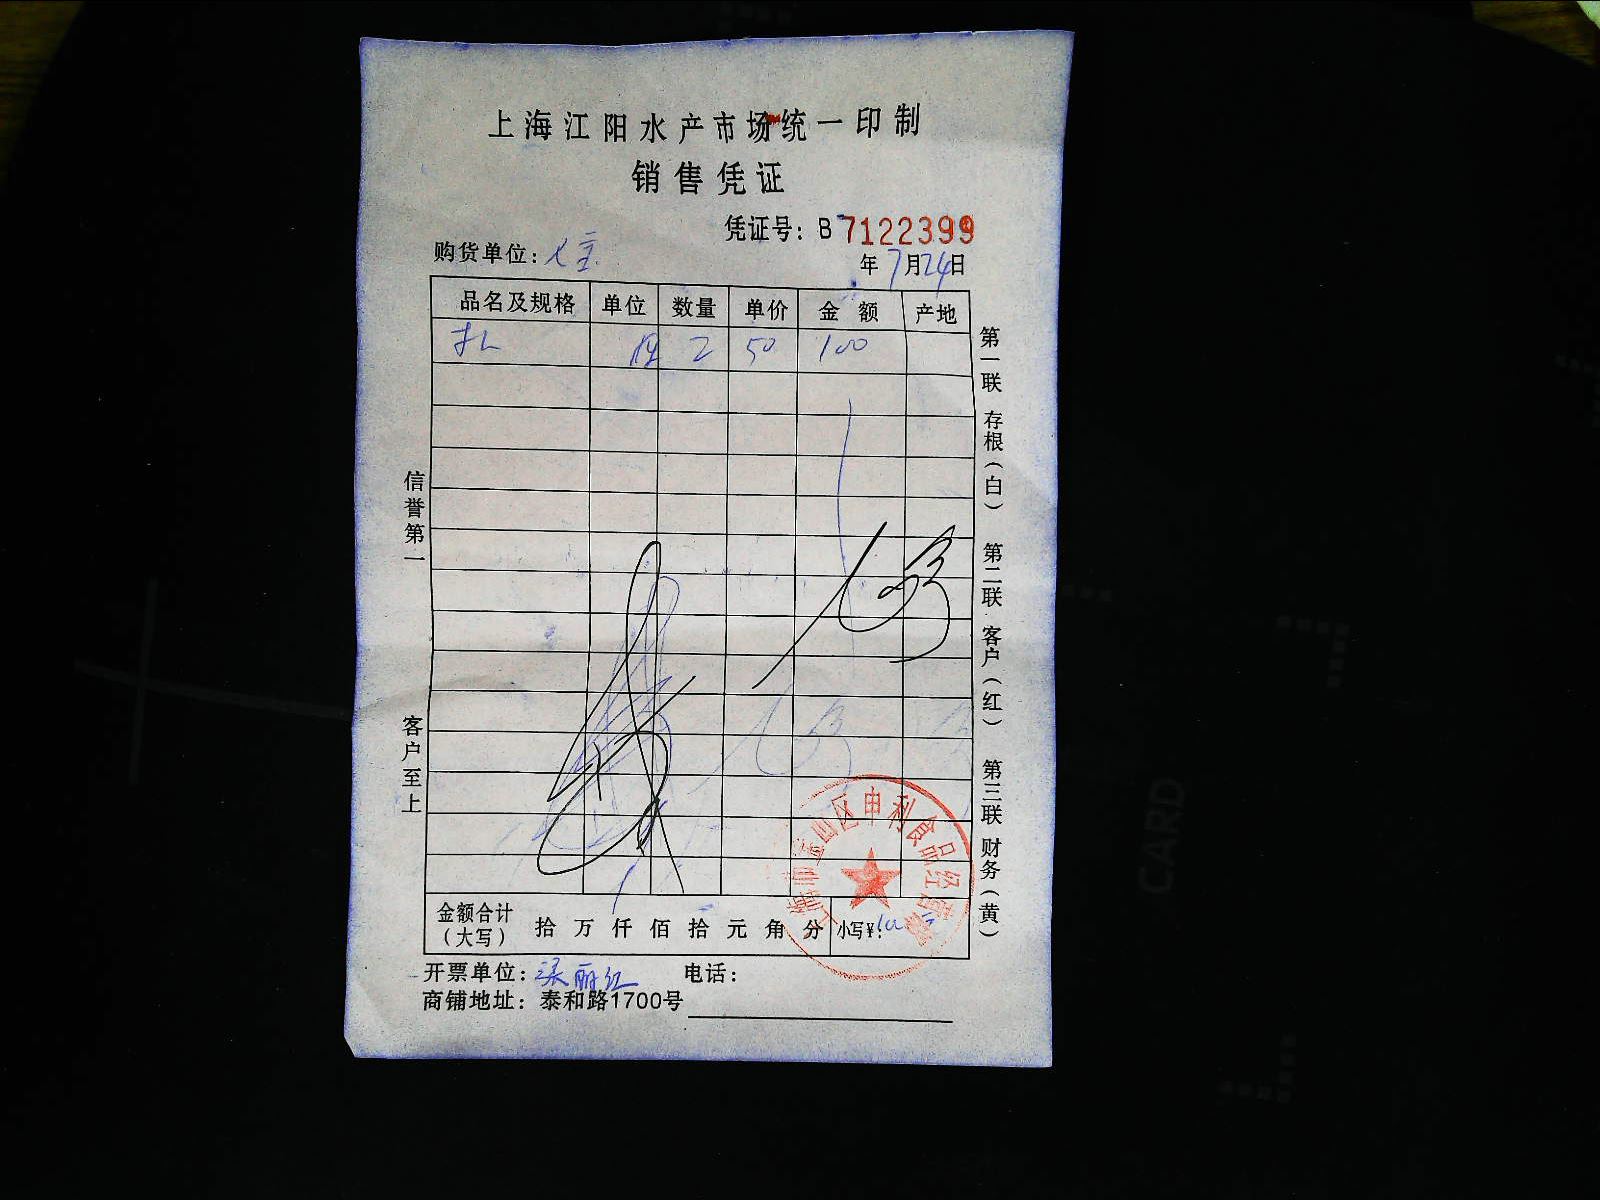 上海江阳水产市场统一印制
销售凭证
凭证号：B 7122399
购货单位：
年 7月24日
品名及规格 单位 数量 单价 金 额 产地
2 50 100
信誉第一 客户至上
第一联 存根（白） 第二联 客户（红） 第三联 财务（黄）
上海市宝山区申利食品经营部
金额合计（大写） 拾 万 仟 佰 拾 元 角 分 小写¥：100
开票单位：梁丽红 电话：
商铺地址：泰和路1700号
CARD